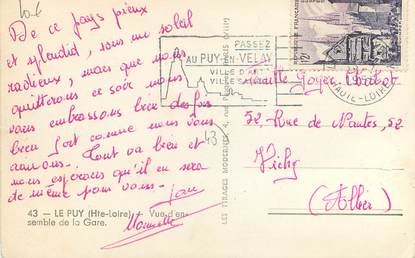 10 €
De ce pays pieux
et splendid, sous un soleil
radieux, mais que nous
quitterons ce soir nous
vous embrassons bien des fois
bien fort comme nous vous
aimons. Tout va bien et
nous espérons qu'il en sera
de même pour vous.
Jean
43 - LE PUY (Hte-Loire) - Vue d'en-
semble de la Gare.
LES TIRAGES MODERNES
PASSEZ
AU PUY-EN-VELAY
VILLE D'ART
12F
HAUTE-LOIRE
Famille Goyer
52, Rue de Nantes, 52
43
Vichy
(Allier)